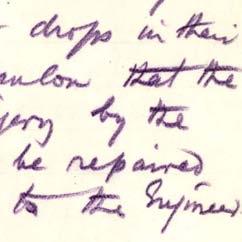 drops in their
that the
by the
be repaired
to the Engineer